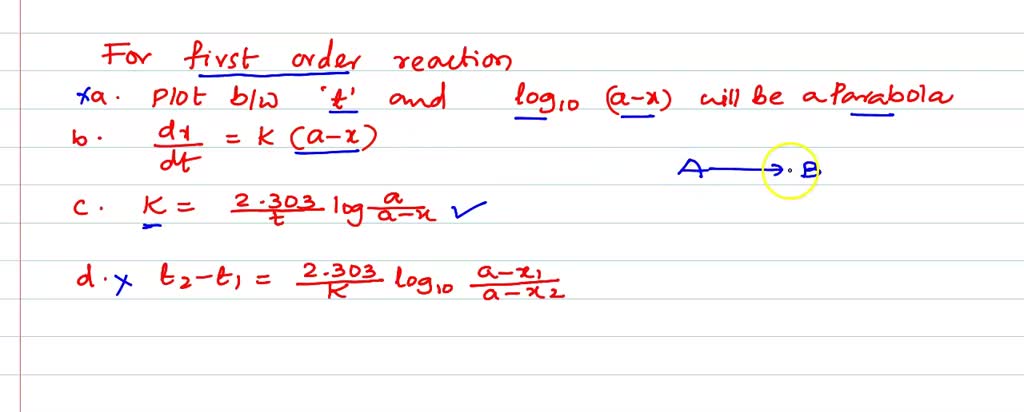 For first order reaction
xa. Plot b/w 't' and log₁₀ (a-x) will be a Parabola
b. dx/dt = K (a-x)
A → B
c. K = 2.303/t log a/a-x ✓
d. x t₂-t₁ = 2.303/K log₁₀ a-x₁/a-x₂